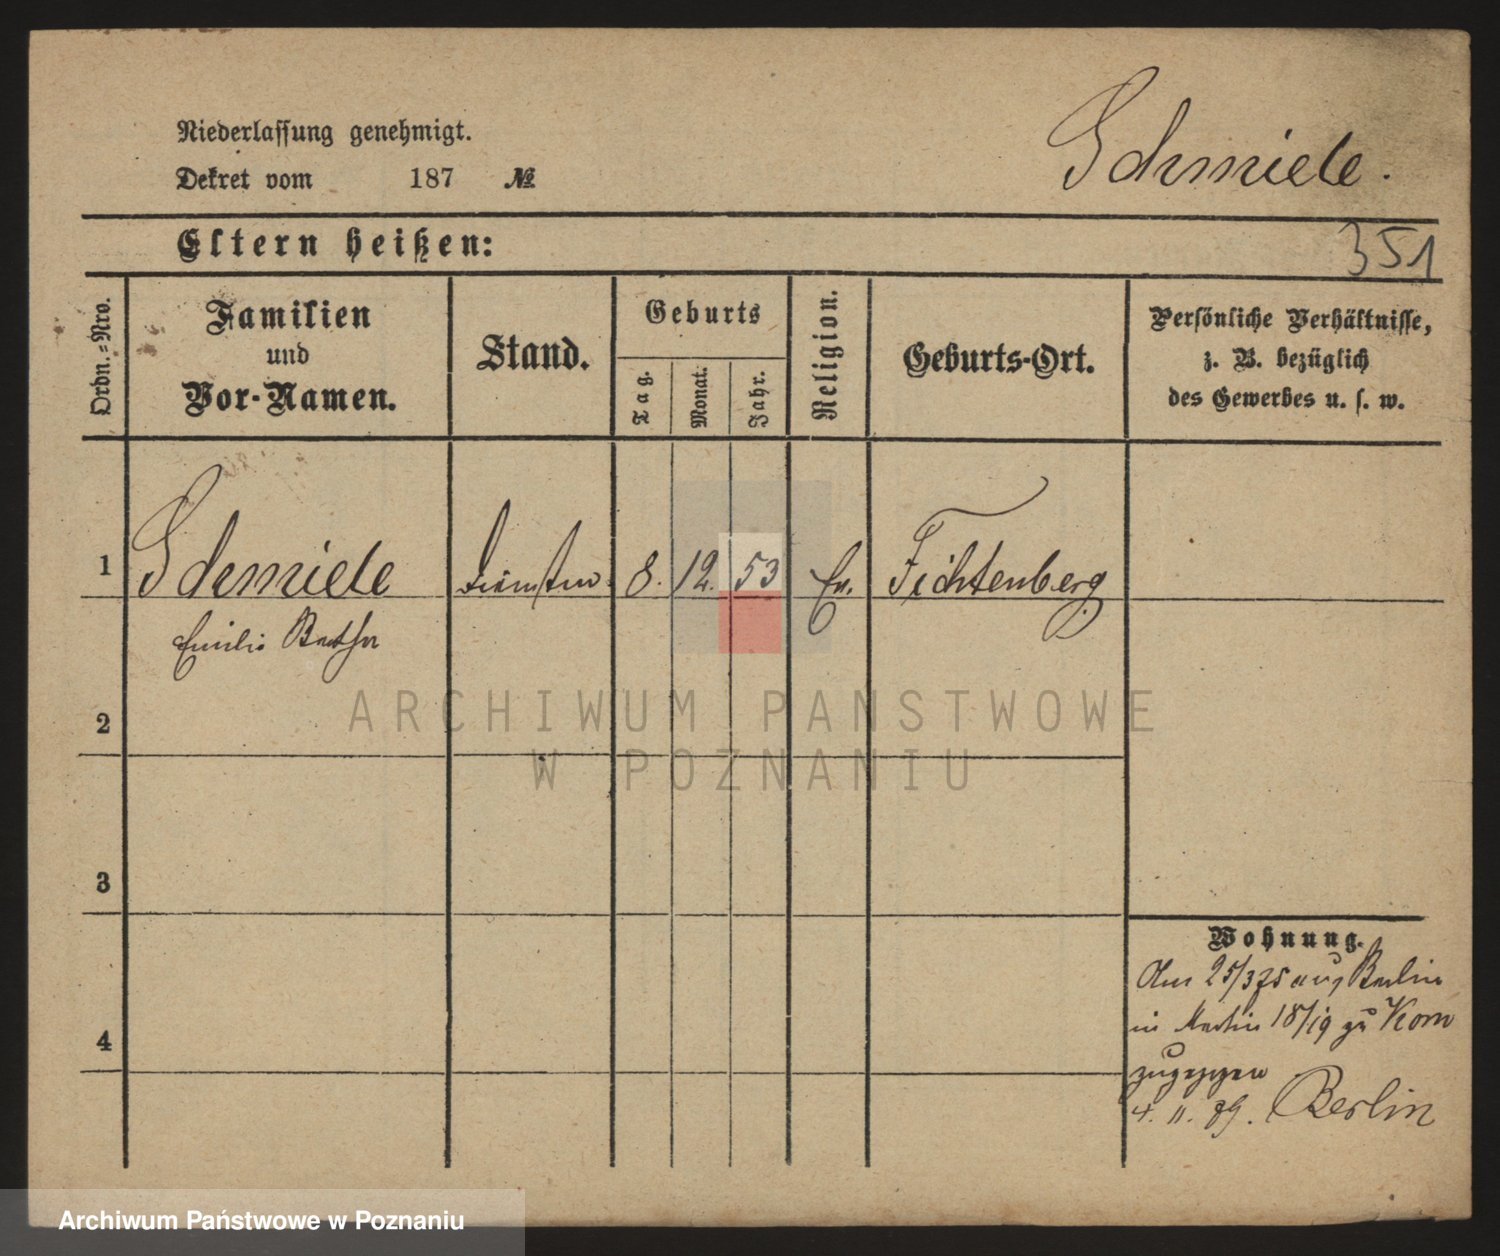 Niederlassung genehmigt.
Dekret vom 187 №
Schmiele.
Eltern heißen:
351
Ordn.-Nro.
Familien
und
Vor-Namen.
Stand.
Geburts
Tag.
Monat.
Jahr.
Religion.
Geburts-Ort.
Persönliche Verhältnisse,
z. B. bezüglich
des Gewerbes u. s. w.
1 Schmiele 8. 12. 53 Ev. Fichtenberg
Emilie Bertha
2
ARCHIWUM PANSTWOWE
W POZNANIU
3
Wohnung.
Am 25/3 75 aus Berlin
in Martin 18/19 zu
zugezogen
4
4. 11. 79. Berlin
Archiwum Państwowe w Poznaniu